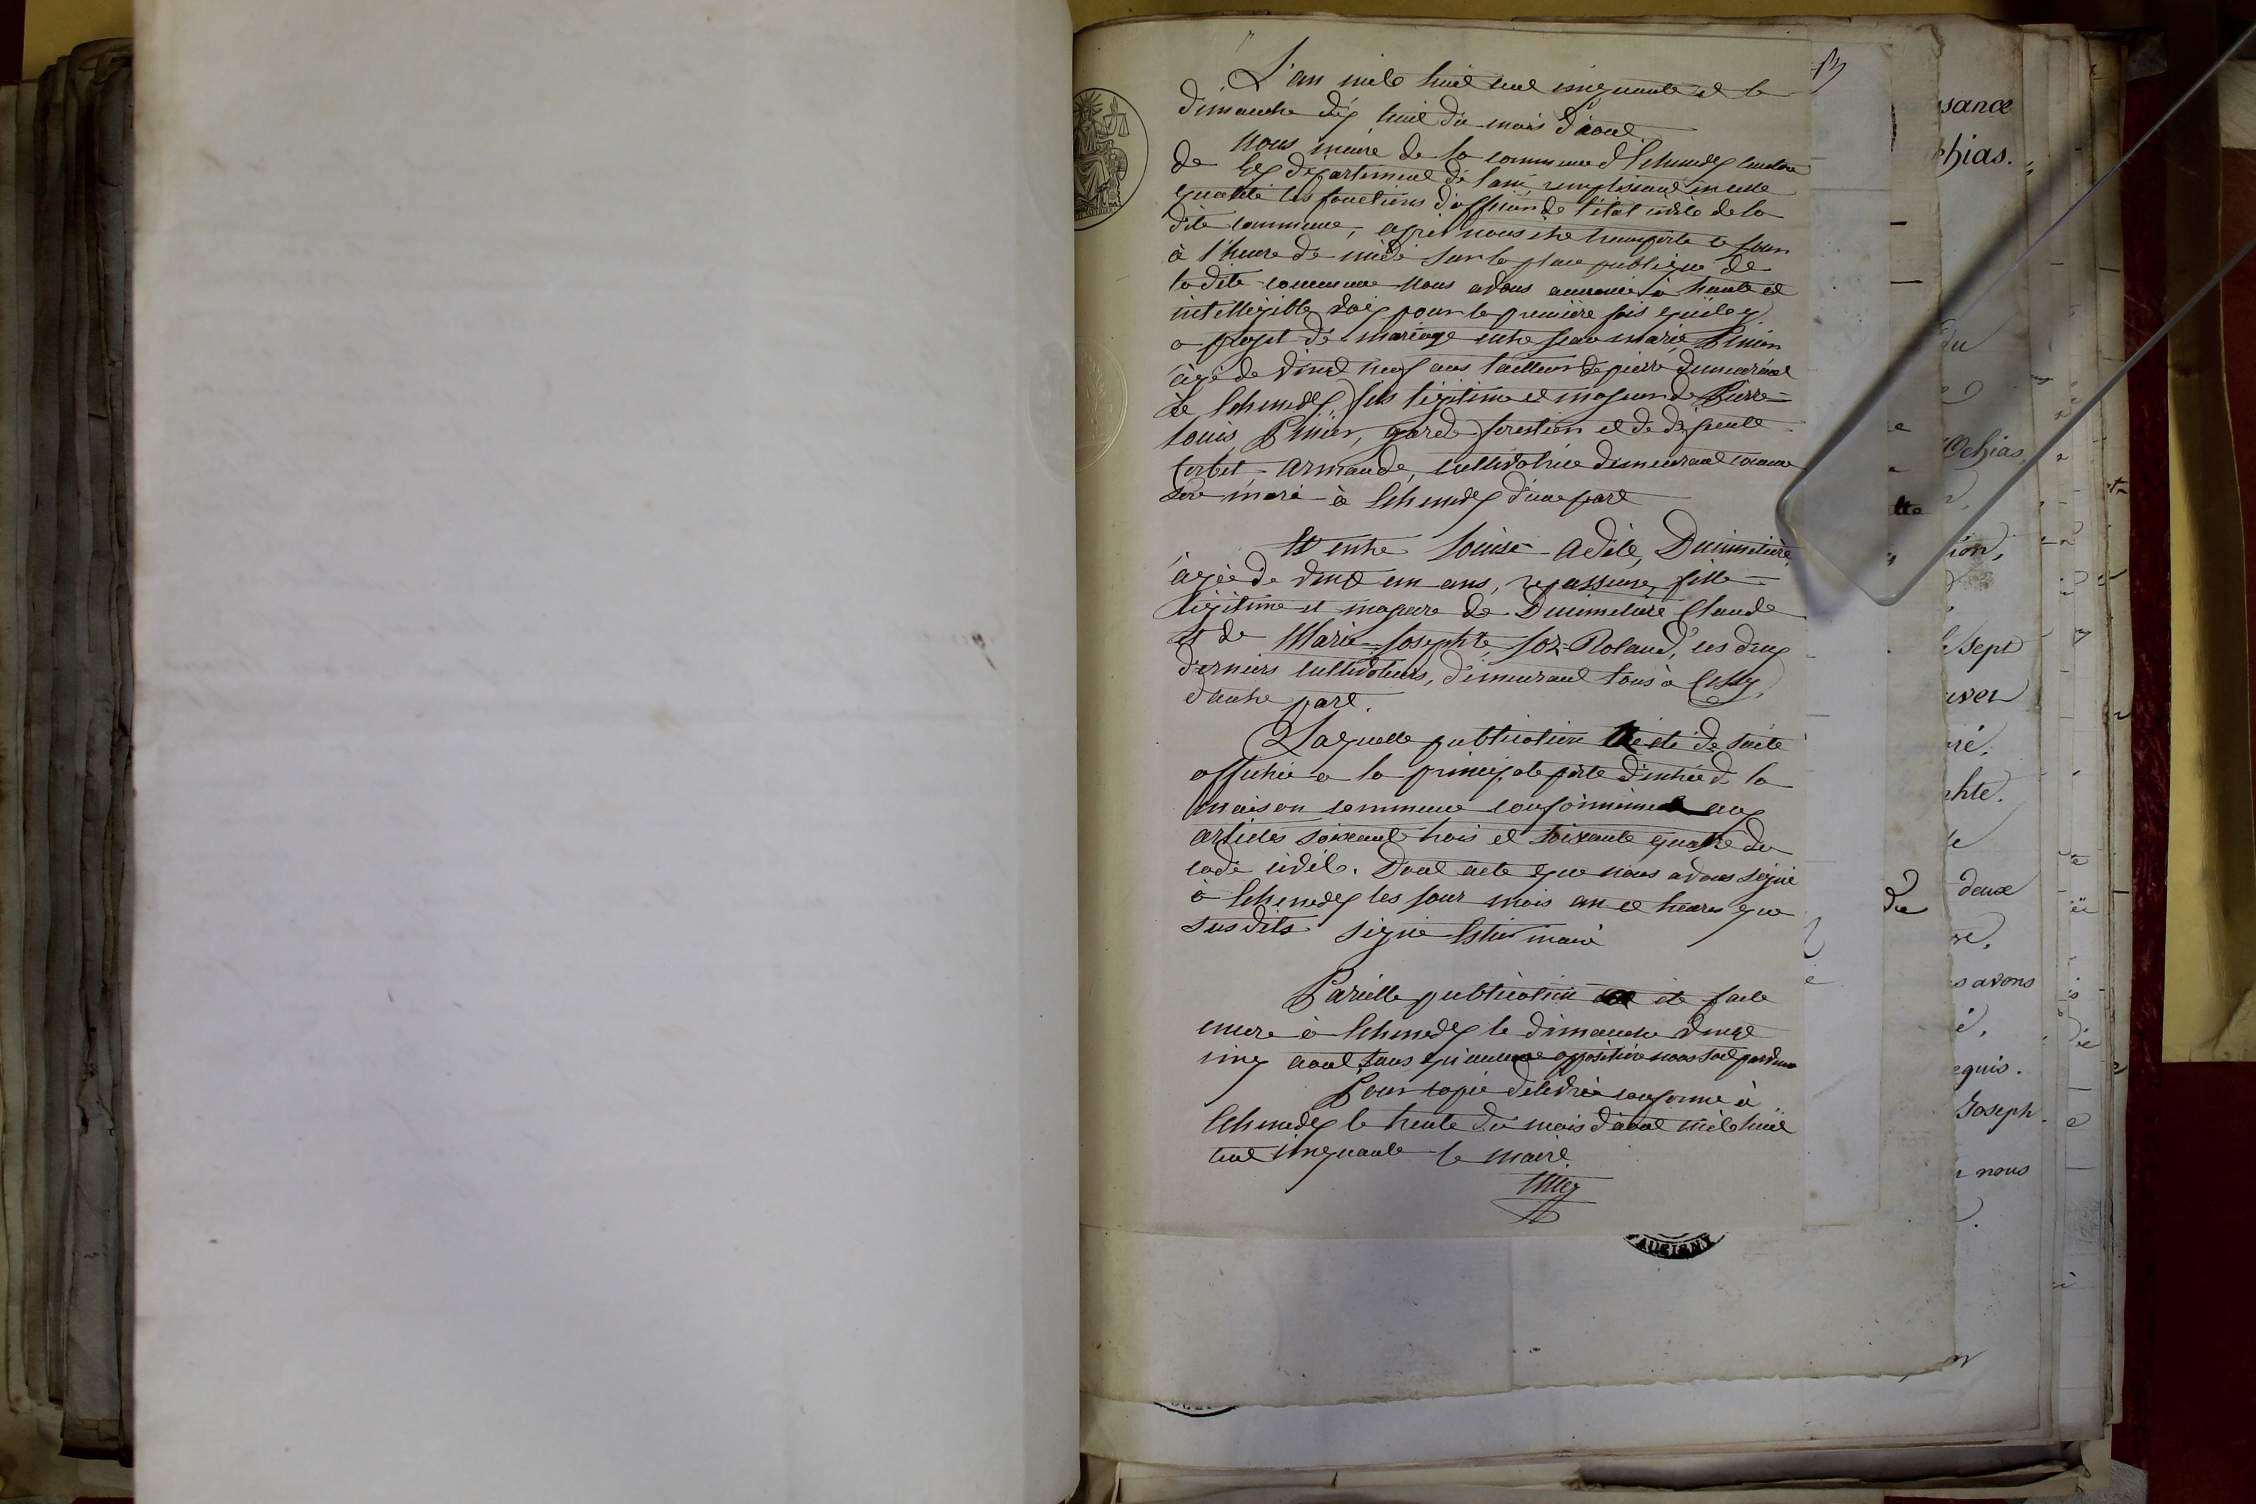 L'an mile huit cent cinquante et le
dimanche dix huit du mois d'aout
Nous maire de la commune d'Echenevex canton
de Gex département de l'ain, remplissant en cette
qualité les fonctions d'officier de l'état civile de la
dite commune, après nous être transporté ce jour
à l'heure de midi sur la place publique de
la dite commune nous avons annoncé à haute et
intelligible voix pour la première fois qu'il y
a projet de mariage entre Jean Marie
âgé de vint neuf ans tailleur de pierre demeurant
à Echenevex, fils légitime et majeur de Pierre
Louis garde forestier et de defunte
Armande, cultivatrice demeurant comme
son mari à Echenevex d'une part
Et entre Louise Adèle, Ducimetière
âgée de vint un ans, repasseuse, fille
légitime et majeure de Ducimetière Claude
et de Marie Josephte, Roland, ces deux
derniers cultivateurs, demeurant tous à Cessy,
d'autre part.
Laquelle publication été de suite
affichée a la principale porte d'entrée d la
maison commune conformément aux
articles soixante trois et soixante quatre du
code civil. Dont acte que nous avons signé
à Echenevex les jour mois an et heures que
susdits signé maire
Pareille publication a été faite
encore à Echenevex le dimanche vingt
cinq aout sans qu'aucune opposition nous soit parvenue
Pour copie délivrée conforme à
Echenevex le trente du mois d'aout mile huit
cent cinquante le maire
sance
chias.
du
Ochias,
tte
tion,
sept
deux
de
s avons
equis.
Joseph
nous
AUBIGNY